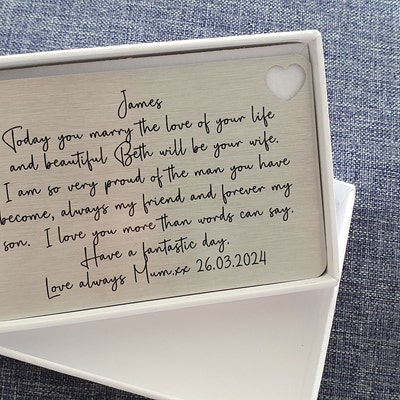 James
Today you marry the love of your life
and beautiful Beth will be your wife.
I am so very proud of the man you have
become, always my friend and forever my
son. I love you more than words can say.
Have a fantastic day.
Love always Mum.xx 26.03.2024